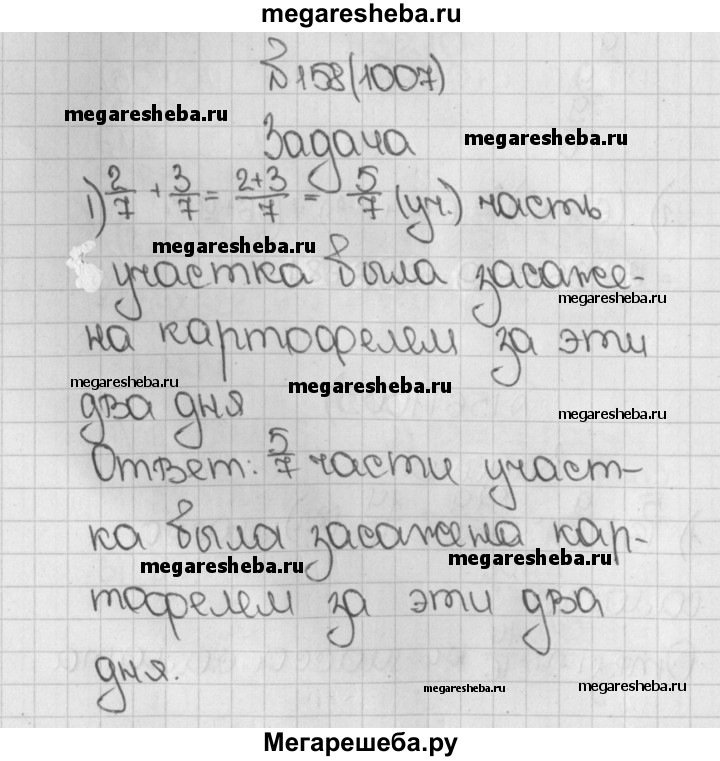 megaresheba.ru
№158(1007)
megaresheba.ru
Задача
megaresheba.ru
1) 2/7 + 3/7 = 2+3/7 = 5/7 (уч.) часть
megaresheba.ru
участка была засаже-
megaresheba.ru
на картофелем за эти
megaresheba.ru
megaresheba.ru
два дня
megaresheba.ru
Ответ: 5/7 части участ-
ка была засажена кар-
megaresheba.ru
megaresheba.ru
тофелем за эти два
дня.
megaresheba.ru
megaresheba.ru
Мегарешеба.ру